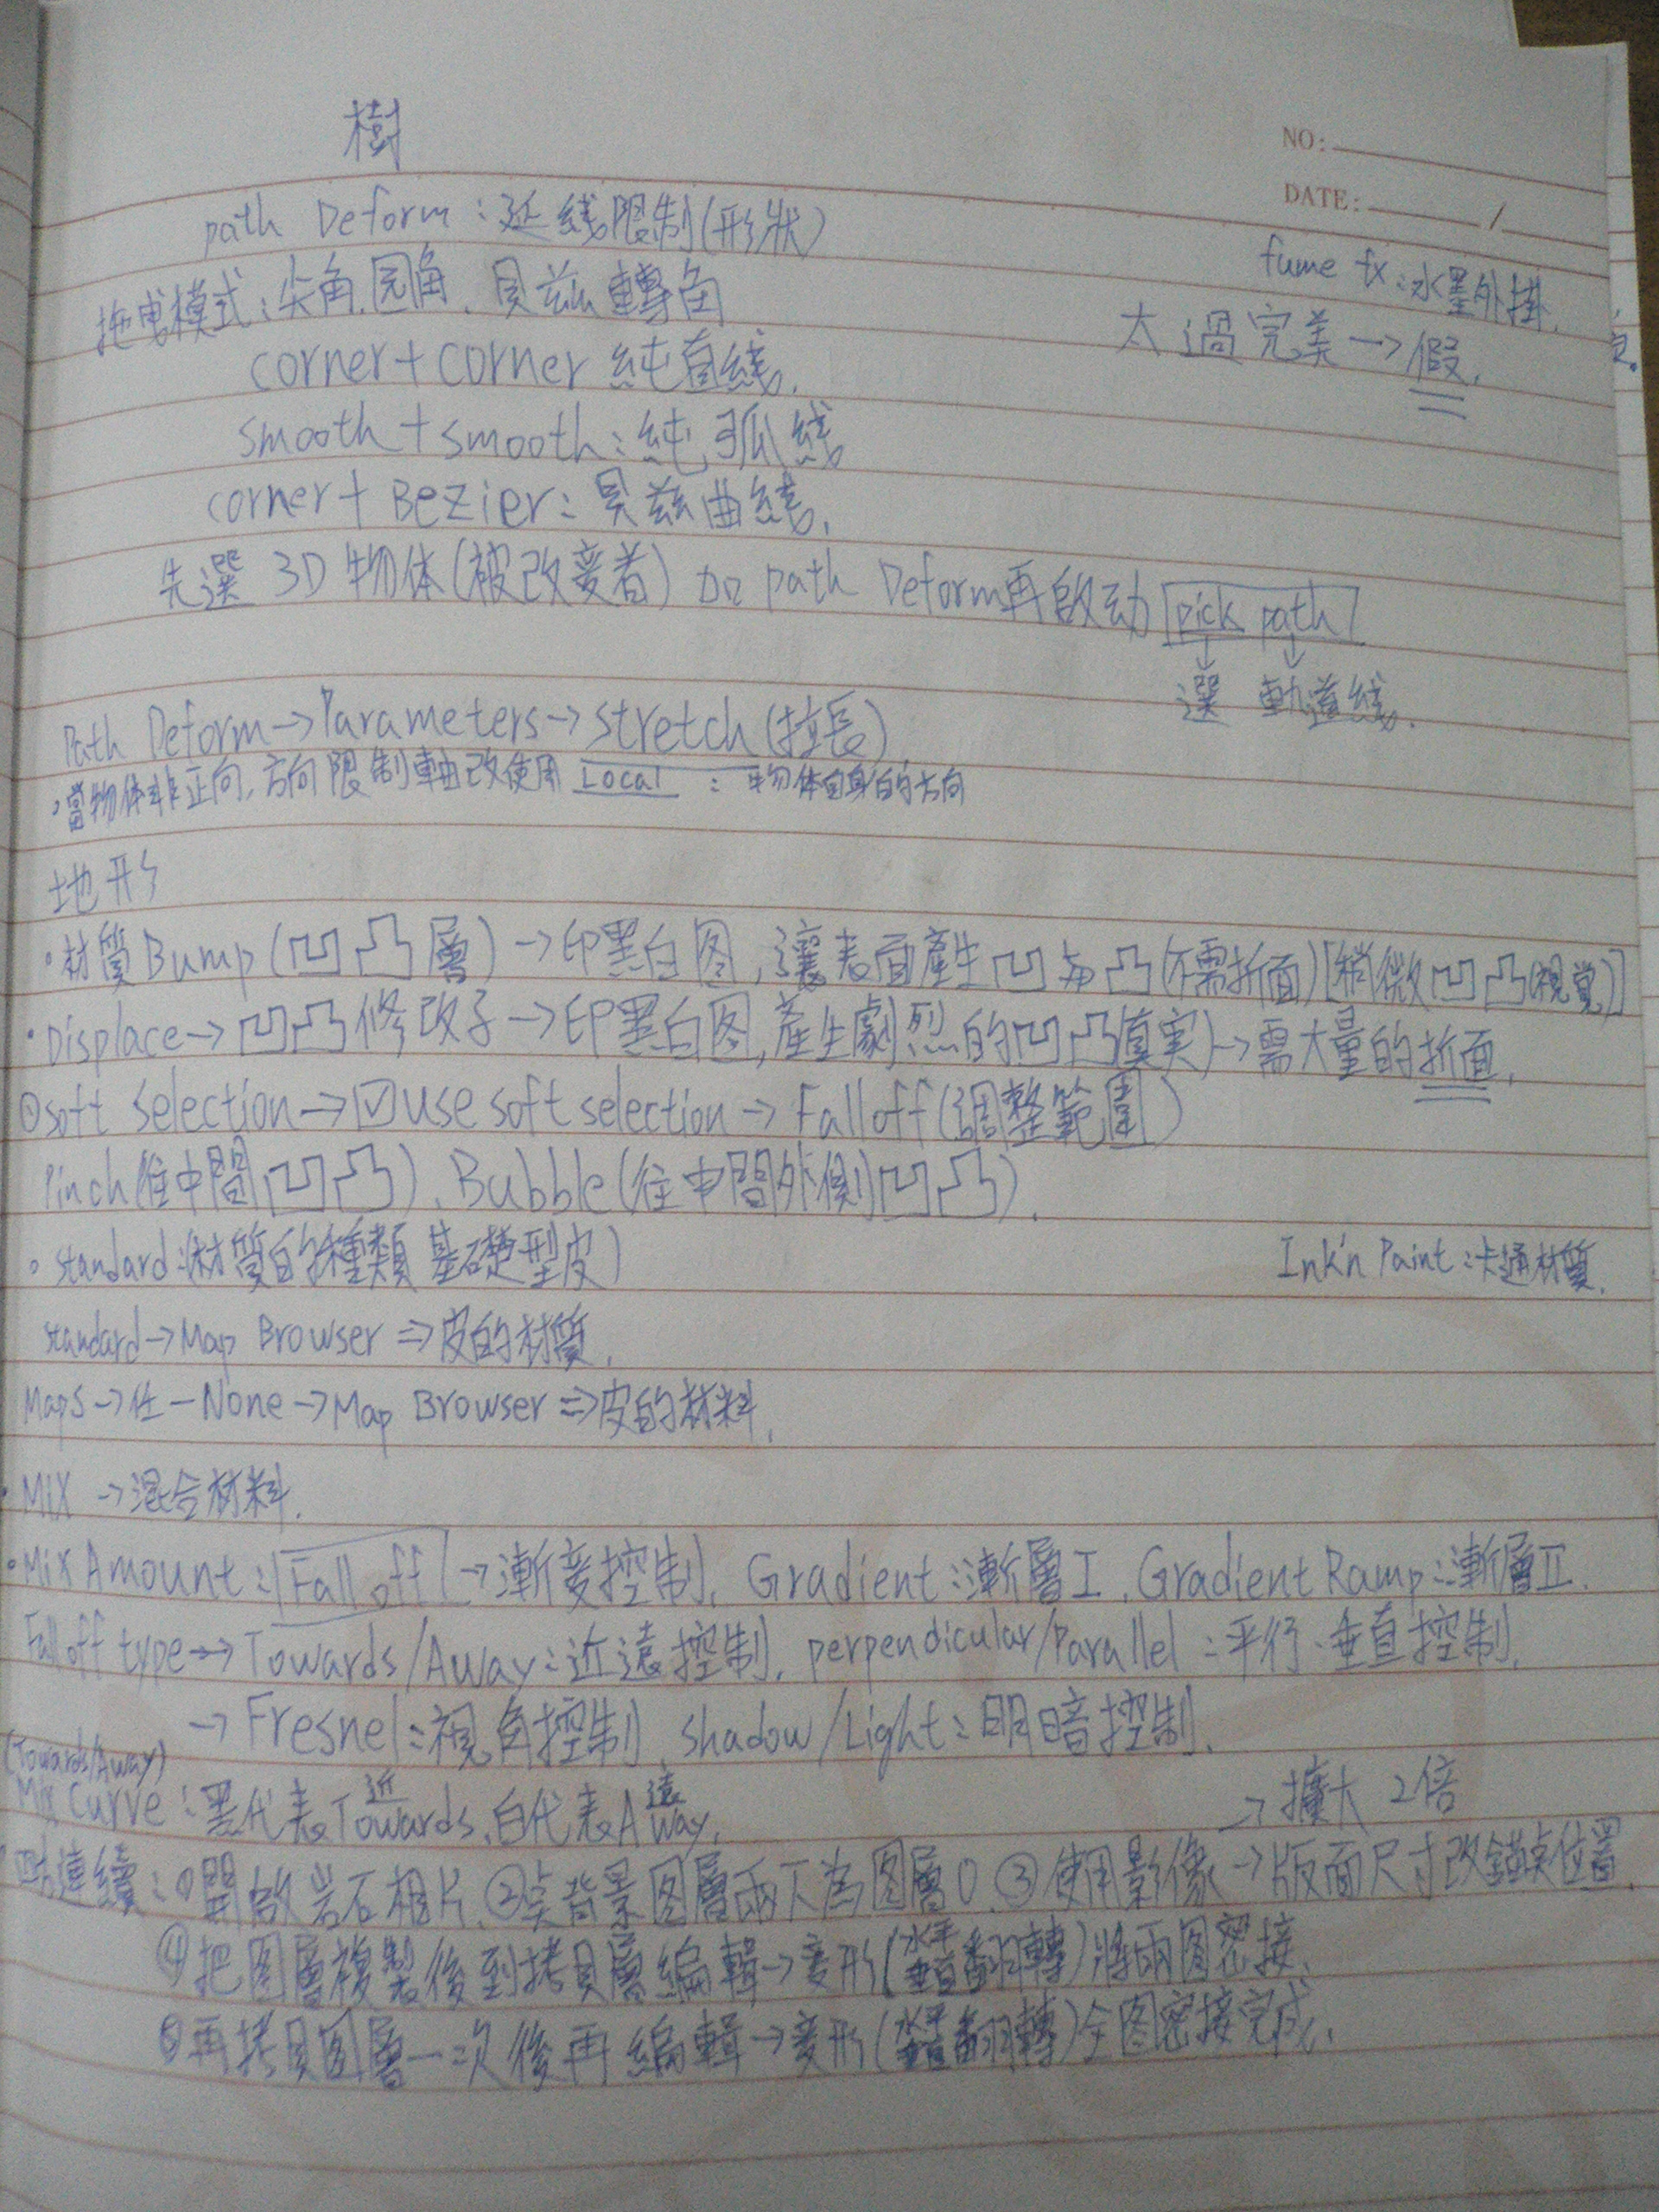 樹
NO:
DATE: /
path Deform：延綫限制(形狀)
fume fx：水墨外掛.
拖曳模式：尖角.园角、貝兹轉角
太過完美→假.
corner+corner 純直綫.
smooth+smooth：純弧綫
corner+Bezier：貝兹曲綫.
先選 3D 物体(被改变者) 加 path Deform再啟动 pick path
選 軌道线.
Path Deform→Parameters→stretch(拉長)
當物体非正向,方向限制軸改使用 Local ：物体自身的方向
地形
•材質Bump(凹凸層)→印黑白图,讓表面產生凹与凸(不需折面)[稍微凹凸(視覚)]
•Displace→凹凸修改子→印黑白图,產生劇烈的凹凸(真実)→需大量的折面.
①soft selection→☑use soft selection→Falloff(調整範圍)
Pinch(往中間凹凸)、Bubble(往中間外側凹凸).
。standard:(材質的種類 基礎型皮)
Ink'n Paint：卡通材質.
standard→Map Browser⇒皮的材質.
Maps→任一None→Map Browser⇒皮的材料.
•Mix →混合材料.
•Mix Amount：Fall off→漸变控制. Gradient：漸層I.Gradient Ramp：漸層II.
Fall off type→Towards/Away：近遠控制. perpendicular/Parallel：平行、垂直控制.
→Fresnel：視角控制、shadow/Light：明暗控制.
(Towards/Away)
近 遠
Mix Curve：黑代表Towards、白代表Away.
→擴大 2倍
連續：①開啟岩石相片.②点背景图層兩下為图層0.③使用影像→版面尺寸改錨点位置.
④把图層複製後到拷貝層編輯→变形(水平垂直翻轉)將兩图密接.
⑤再拷貝图層一次後再編輯→变形(水平垂直翻轉)全图密接完成.